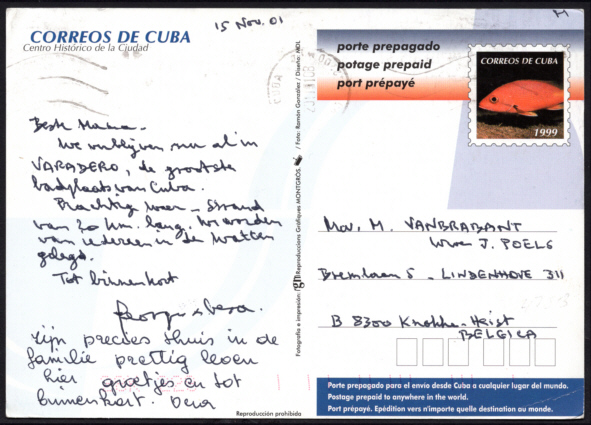 15 Nov. 01
CORREOS DE CUBA
Centro Histórico de la Ciudad
Beste Mama -
We verblijven nu al in
VARADERO, de grootste
badplaats van Cuba.
Prachtig weer - Strand
van 20 km. lang. We worden
van iedereen in de watten
gelegd.
Tot binnenkort
Vera.
Zijn precies thuis in de
familie prettig leven
hier groetjes en tot
binnenkort. Vera
Reproducción prohibida
Fotografía e impresión: Reproduccions Gràfiques MONTGRÒS / Foto: Ramón González / Diseño: MOL
CUBA
porte prepagado
potage prepaid
port prépayé
CORREOS DE CUBA
1999
Mev. M. VANBRABANT
Wwe J. POELS
Bremlaan 5 - LINDENHOVE 311
B 8300 Knokke-Heist
BELGICA
Porte prepagado para el envío desde Cuba a cualquier lugar del mundo.
Postage prepaid to anywhere in the world.
Port prépayé. Epédition vers n'importe quelle destination au monde.